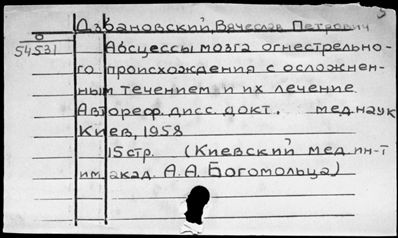 Дзбановский, Вячеслав Петрович
54531
Абсцессы мозга огнестрельно-
го происхождения с осложнен-
ным течением и их лечение
Автореф. дисс. докт. мед наук
Киев, 1958
15 стр. (Киевский мед. ин-т
им. акад. А. А. Богомольца)